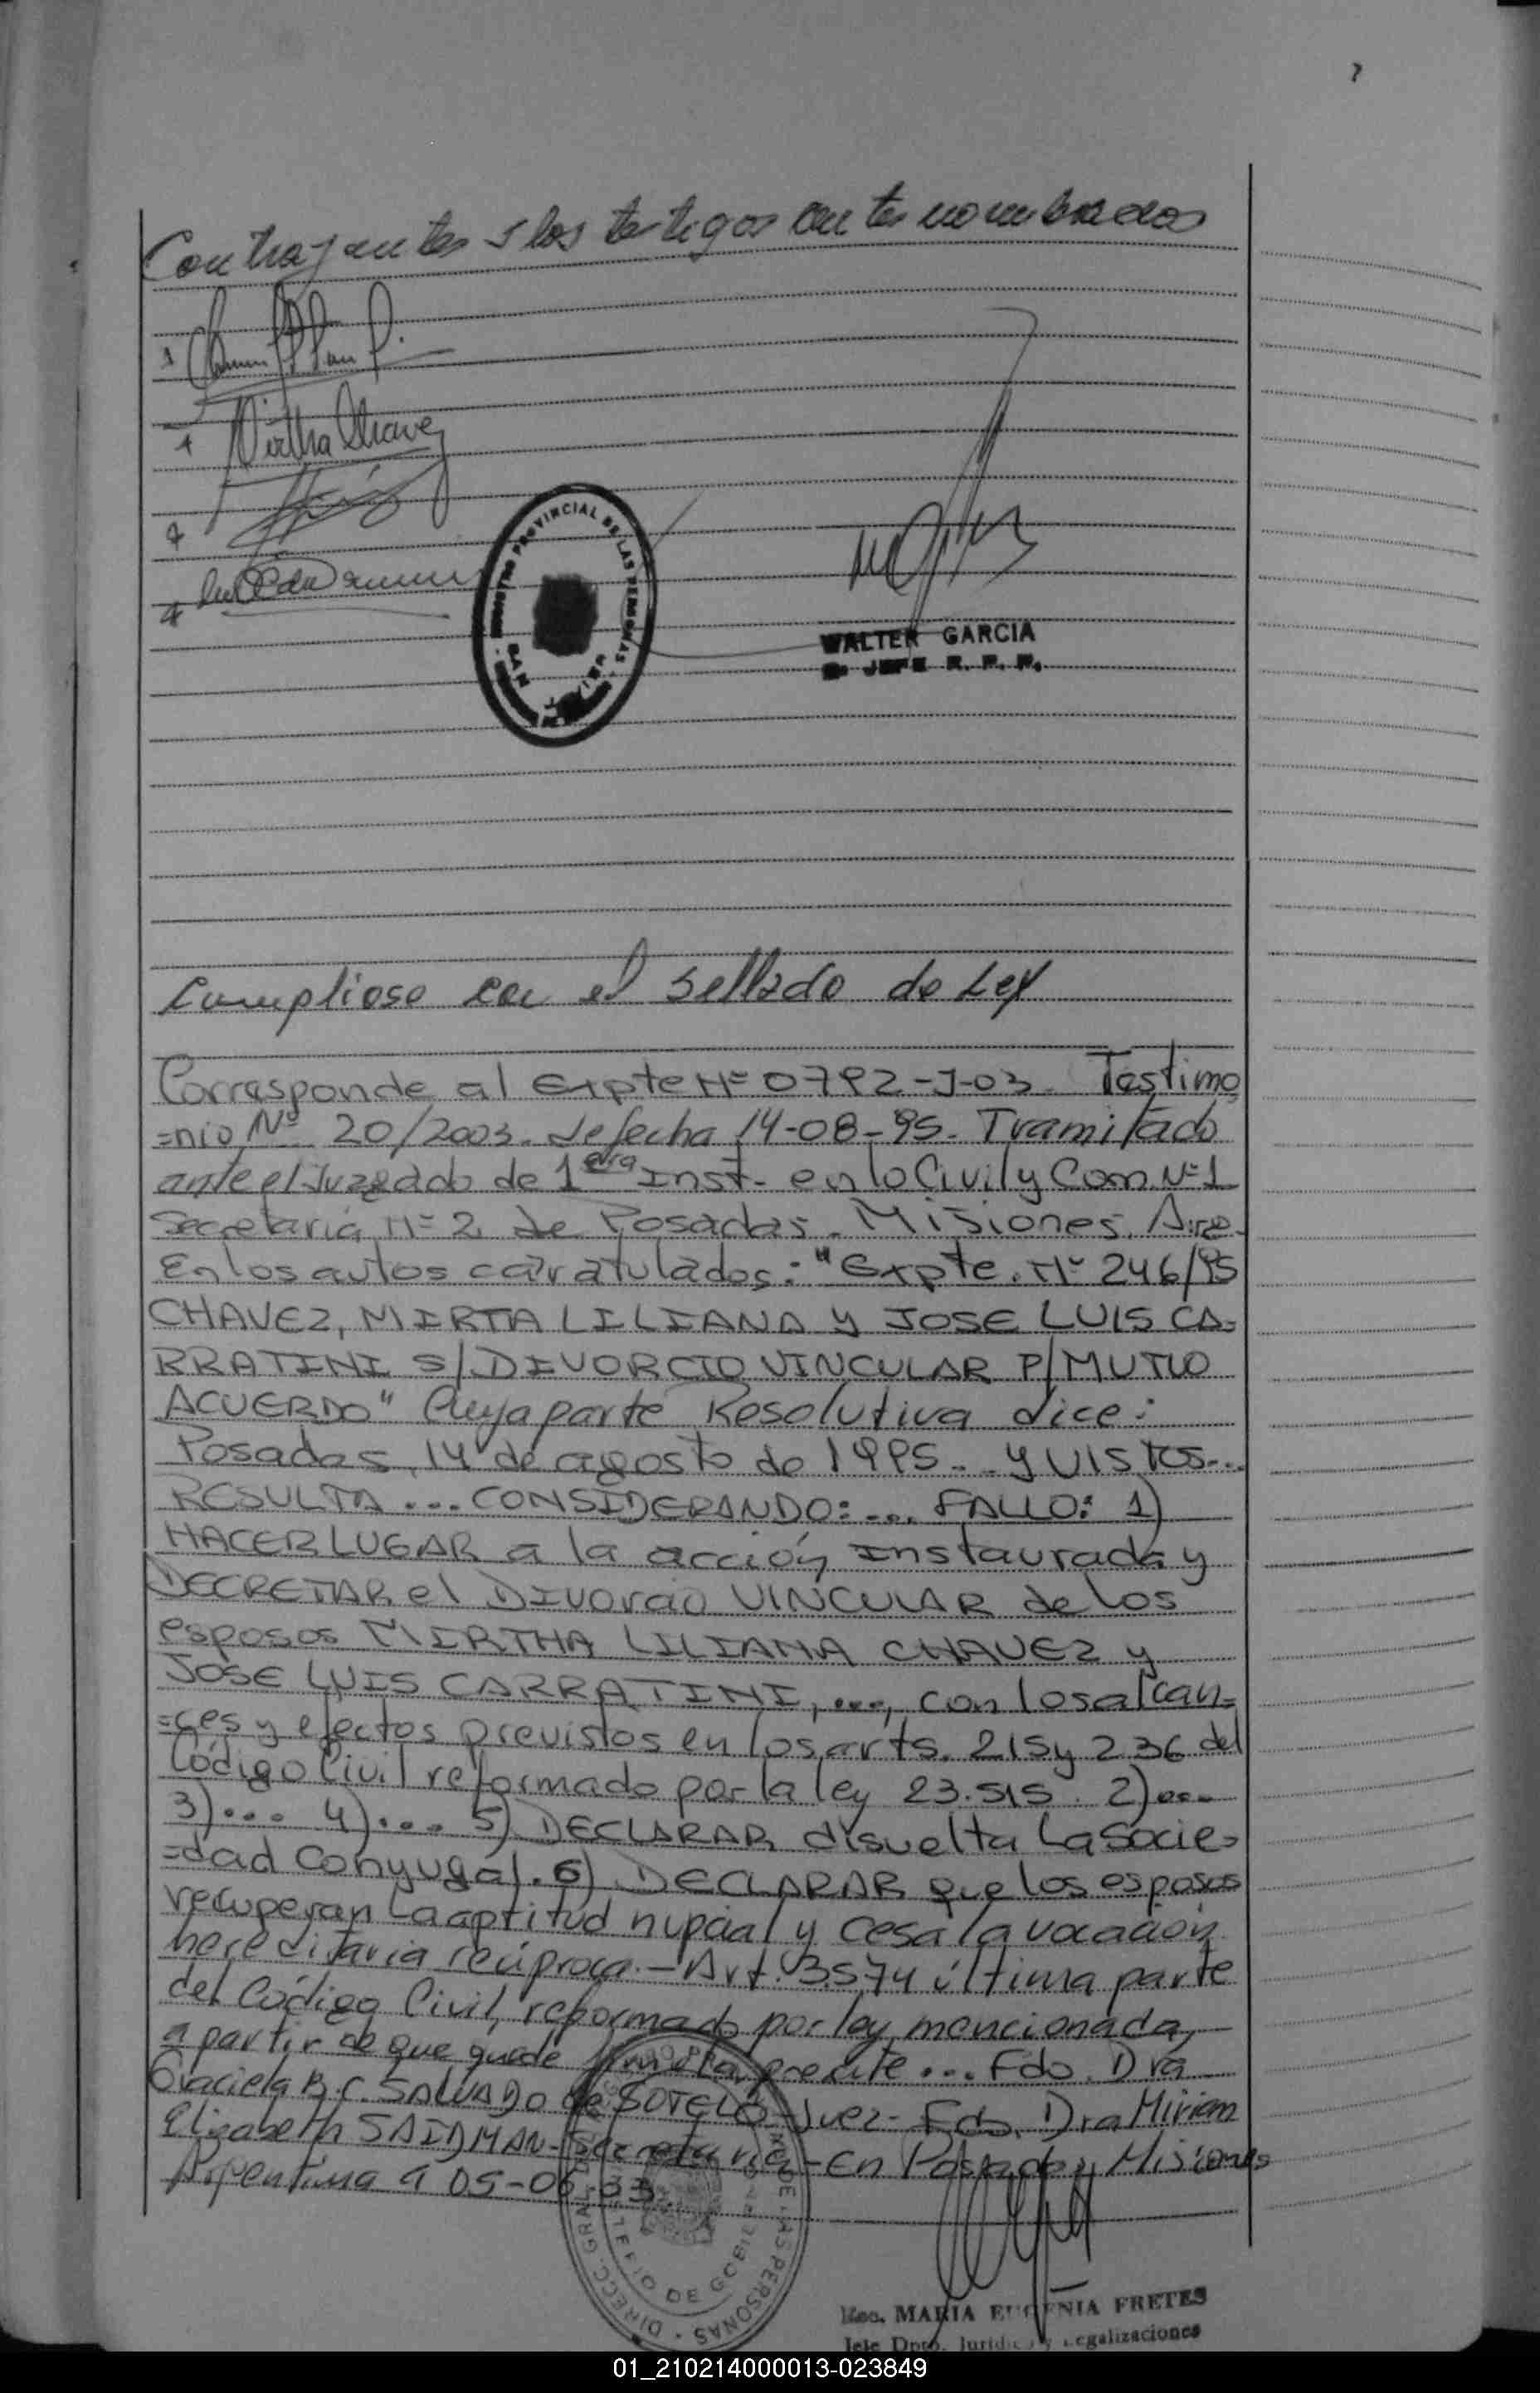 Contrayentes y los testigos ante nombrados
Mirtha Chavez
REGISTRO PROVINCIAL DE LAS PERSONAS
SAN JAVIER
WALTER GARCIA
JEFE R. P. P.
Cumpliose con el sellado de Ley
Corresponde al Expte Nº 0792-J-03. Testimo
=nio Nº 20/2003. de fecha 14-08-95. Tramitado
ante el Juzgado de 1era Inst. en lo Civil y Com. Nº 1
Secretaria Nº 2 de Posadas. Misiones. Arg.
En los autos caratulados: "Expte. Nº 246/95
CHAVEZ, MIRTA LILIANA y JOSE LUIS CA=
RRATINI S/ DIVORCIO VINCULAR P/ MUTUO
ACUERDO" Cuya parte Resolutiva dice:
Posadas, 14 de agosto de 1995. - y VISTOS...
RESULTA ... CONSIDERANDO: ... FALLO: 1)
HACER LUGAR a la acción Instaurada y
DECRETAR el DIVORCIO VINCULAR de los
esposos MIRTHA LILIANA CHAVEZ y
JOSE LUIS CARRATINI, ..., con los alcan=
=ces y efectos previstos en los arts. 215 y 236 del
Código Civil reformado por la ley 23.515. 2)...
3)... 4)... 5) DECLARAR disuelta la Socie=
=dad Conyugal. 6) DECLARAR que los esposos
recuperan la aptitud nupcial y cesa la vocación
hereditaria recíproca. - Art. 3.574 última parte
del Código Civil, reformado por ley mencionada,
a partir de que quede firme la presente ... Fdo. Dra
Graciela B. C. SALVADO de SOTELO - Juez - Fdo. Dra Miriam
Elizabeth SAIDMAN - Secretaria - En Posadas, Misiones
Argentina a 05-06-
DIRECC. GRAL. DE LAS PERSONAS
DE GOBIERNO
Esc. MARIA EUGENIA FRETES
Jefe Dpto. Juridico y Legalizaciones
01_210214000013-023849